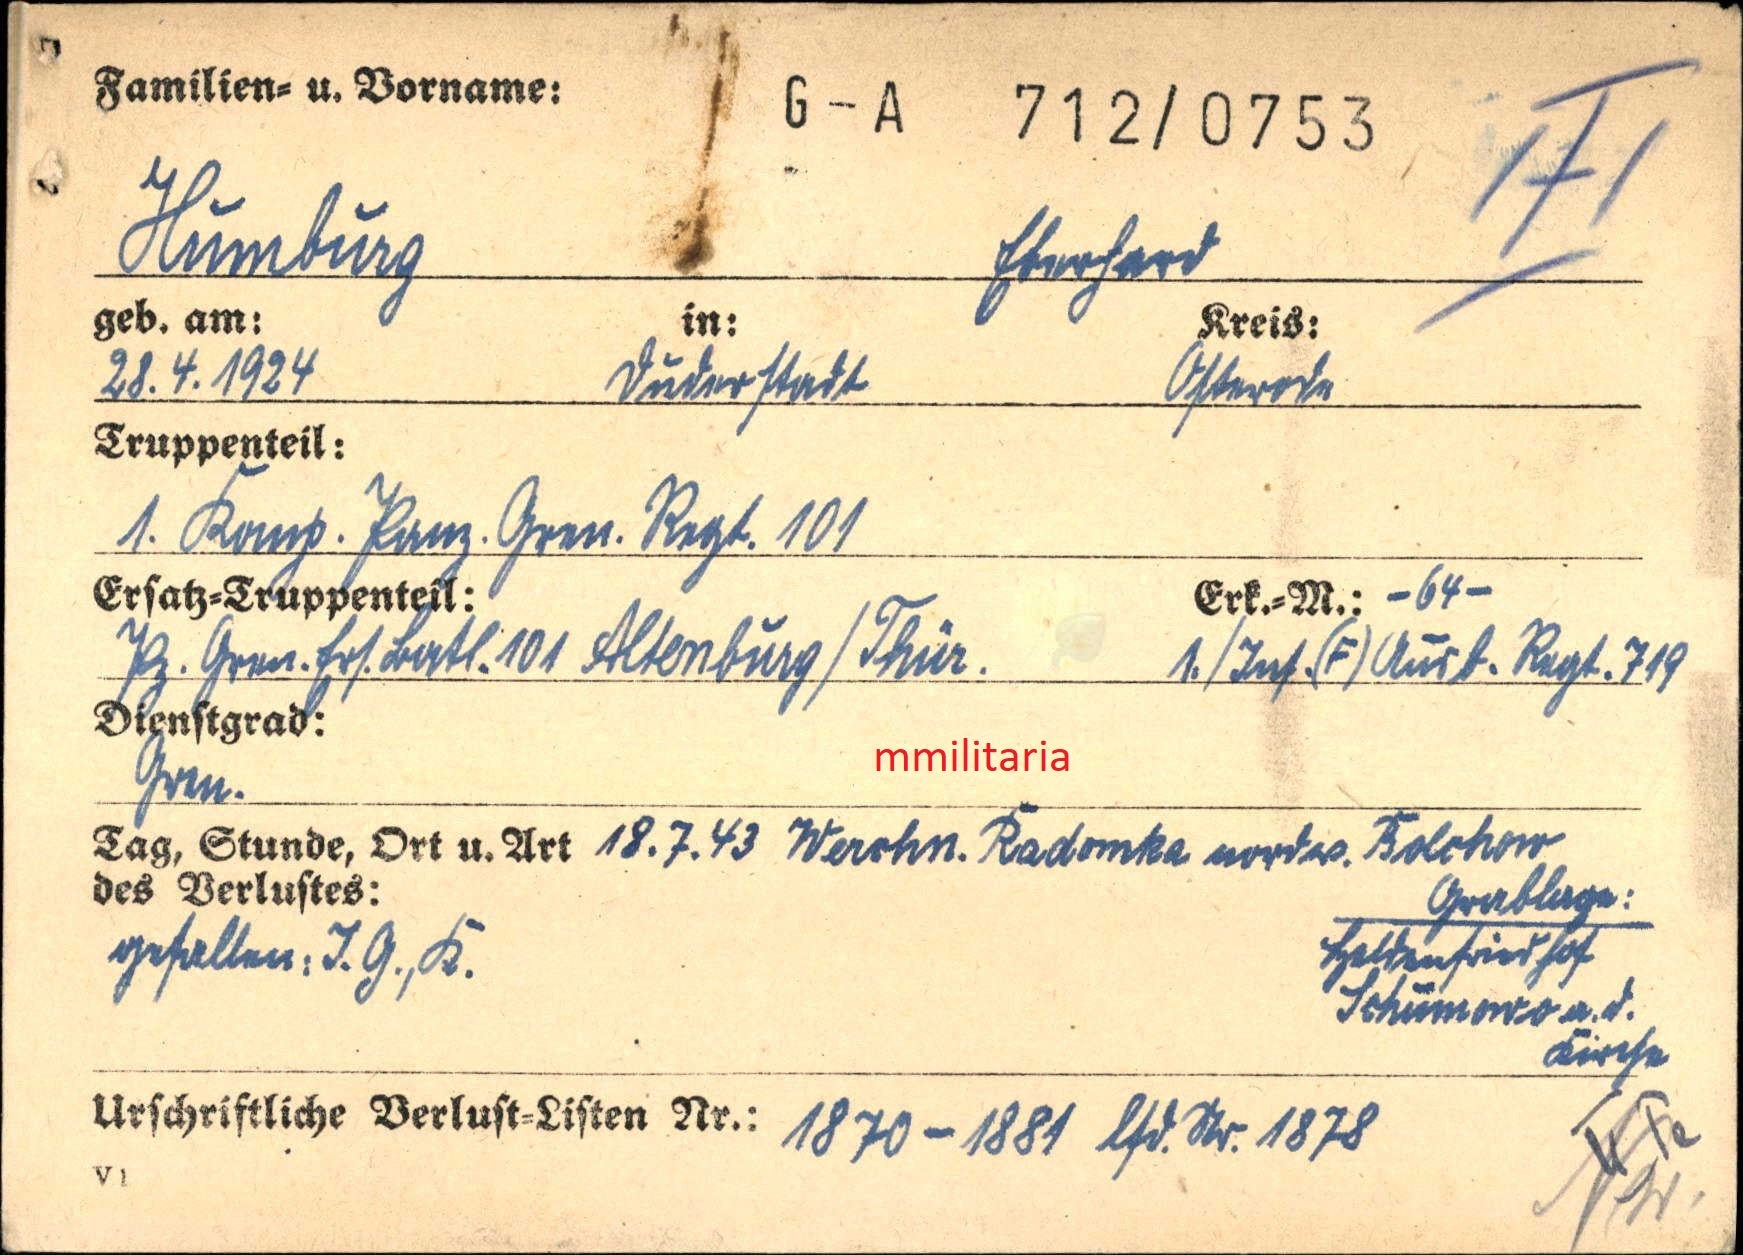 Familien- u. Vorname: G-A 712/0753
Humburg Eberhard
geb. am: in: Kreis:
28.4.1924 Duderstadt Osterode
Truppenteil:
1. Komp. Panz. Gren. Regt. 101
Ersatz-Truppenteil: Erk.-M.: -64-
Pz. Gren. Ers. Batl. 101 Altenburg/Thür. 1./Inf.(F) Ausb. Regt. 719
Dienstgrad:
Gren.
mmilitaria
Tag, Stunde, Ort u. Art 18.7.43 Werchn. Radomka nordw. Bolchow
des Verlustes:
Grablage:
gefallen: I.G., K. Heldenfriedhof
Schumowo a.d.
Kirche
Urschriftliche Verlust-Listen Nr.: 1870-1881 lfd. Nr. 1878
V1